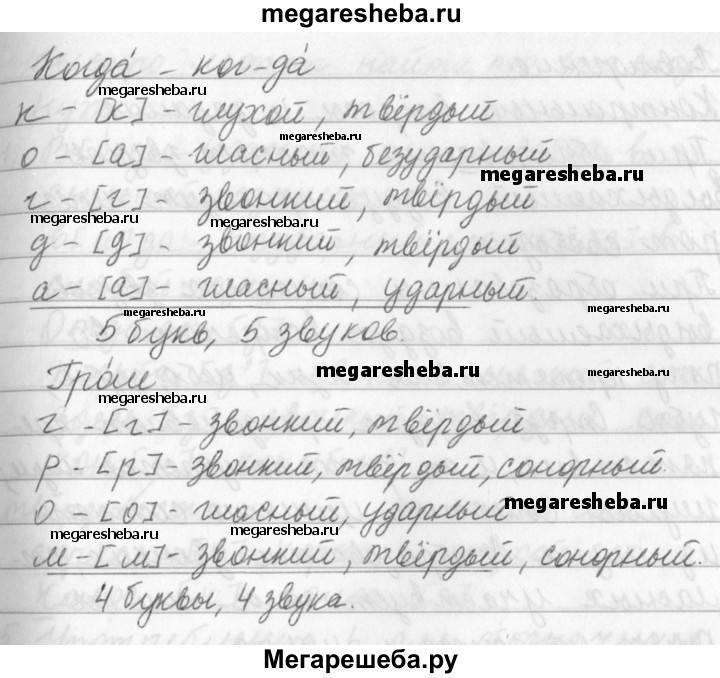 megaresheba.ru
Когда́ - ког-да́
megaresheba.ru
к - [к] - глухой, твёрдый
megaresheba.ru
о - [а] - гласный, безударный
megaresheba.ru
г - [г] - звонкий, твёрдый
megaresheba.ru megaresheba.ru
д - [д] - звонкий, твёрдый
а - [а] - гласный, ударный.
megaresheba.ru megaresheba.ru
5 букв, 5 звуков.
megaresheba.ru
Гро́м
megaresheba.ru megaresheba.ru
megaresheba.ru
г - [г] - звонкий, твёрдый
р - [р] - звонкий, твёрдый, сонорный.
о - [о] - гласный, ударный
megaresheba.ru
megaresheba.ru megaresheba.ru
м - [м] - звонкий, твёрдый, сонорный.
4 буквы, 4 звука.
Мегарешеба.ру